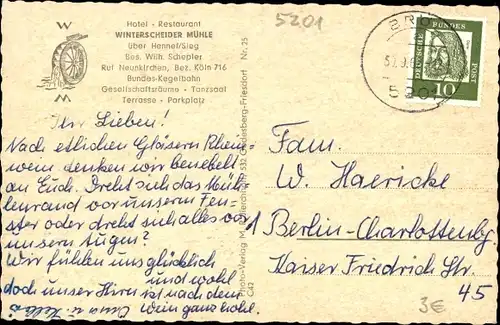 5201
W M
Hotel - Restaurant
WINTERSCHEIDER MÜHLE
über Hennef/Sieg
Bes. Wilh. Schepler
Ruf Neunkirchen, Bez. Köln 716
Bundes-Kegelbahn
Gesellschaftsräume - Tanzsaal
Terrasse - Parkplatz
Ihr Lieben!
Nach etlichen Gläsern Rhein-
wein denken wir benebelt
an Euch. Dreht sich das Müh-
lenrand vor unserm Fen-
ster oder dreht sich alles vor
unsern Augen?
Wir fühlen uns glücklich
und wohl
doch unser Hirn ist nach dem
Wein ganz hohl.
Oma u.
Nr. 25
532 Godesberg-Friesdorf
Photo-Verlag
C42
BRÖL
5201
DEUTSCHE BUNDESPOST
10
Fam.
W. Haericke
1 Berlin-Charlottenbg
Kaiser Friedrich Str.
45
3€